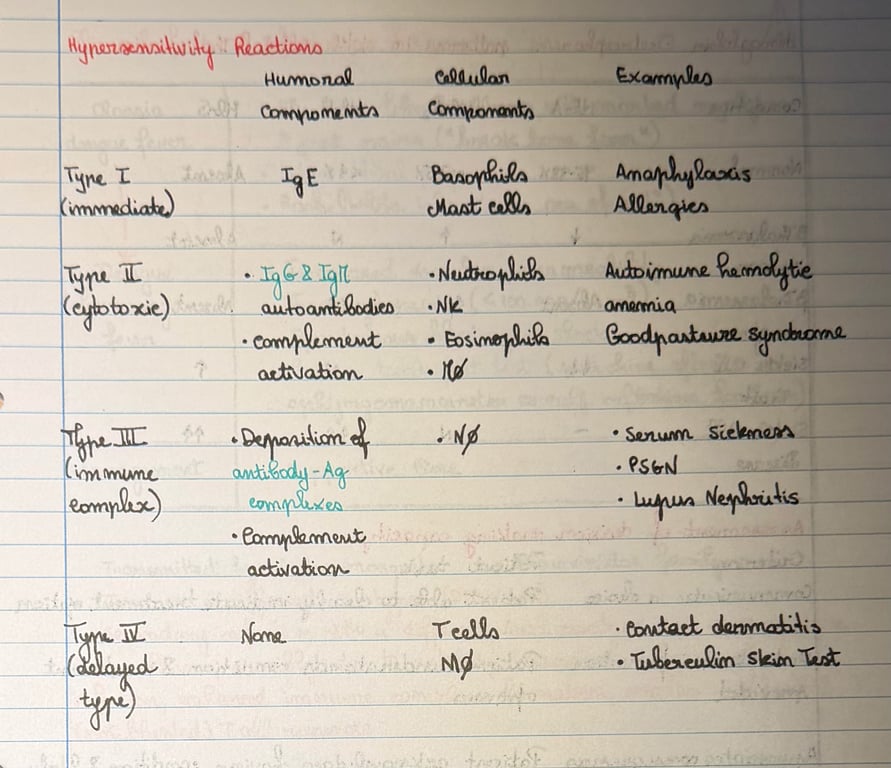 Hypersensitivity Reactions
Humoral Cellular Examples
Components Components
Type I IgE Basophils Anaphylaxis
(immediate) Mast cells Allergies
Type II • IgG & IgM • Neutrophils Autoimune hemolytic
(cytotoxic) autoantibodies • NK anemia
• complement • Eosinophils Goodpasture syndrome
activation • MØ
Type III • Deposition of • NØ • Serum sickness
(immune antibody-Ag • PSGN
complex) complexes • Lupus Nephritis
• Complement
activation
Type IV None T cells • Contact dermatitis
(delayed MØ • Tuberculin Skin Test
type)